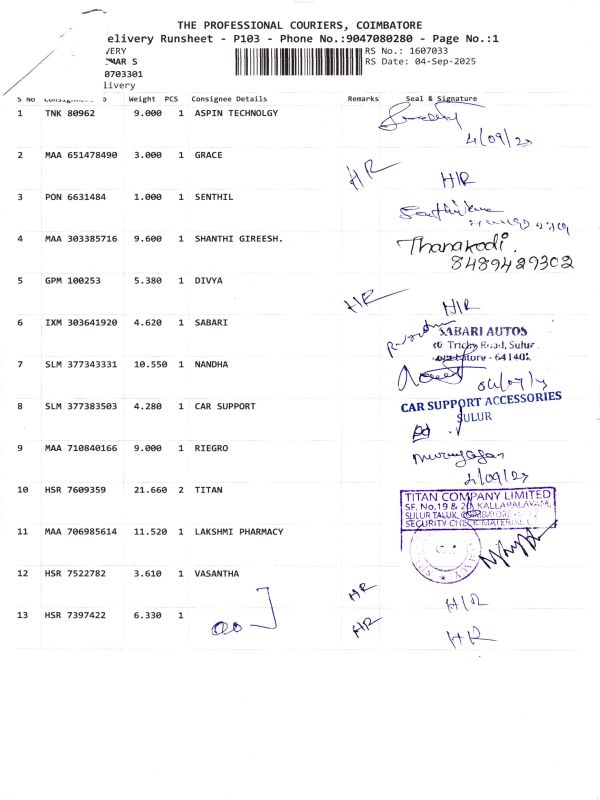 THE PROFESSIONAL COURIERS, COIMBATORE
elivery Runsheet - P103 - Phone No.:9047080280 - Page No.:1
RS No.: 1607033
MAR S RS Date: 04-Sep-2025
0703301
livery
S No Weight PCS Consignee Details Remarks Seal & Signature
1 TNK 80962 9.000 1 ASPIN TECHNOLGY
4/09/25
2 MAA 651478490 3.000 1 GRACE HR H/R
3 PON 6631484 1.000 1 SENTHIL
4 MAA 303385716 9.600 1 SHANTHI GIREESH. Thanakodi.
8489429302
5 GPM 100253 5.380 1 DIVYA HR H/R
6 IXM 303641920 4.620 1 SABARI
SABARI AUTOS
Trichy Road, Sulur
7 SLM 377343331 10.550 1 NANDHA
8 SLM 377383503 4.280 1 CAR SUPPORT CAR SUPPORT ACCESSORIES
SULUR
9 MAA 710840166 9.000 1 RIEGRO
4/09/25
10 HSR 7609359 21.660 2 TITAN TITAN COMPANY LIMITED
SF. No.19 & 20, KALLAPALAYAM,
SULUR TALUK,
SECURITY CHECK
11 MAA 706985614 11.520 1 LAKSHMI PHARMACY
12 HSR 7522782 3.610 1 VASANTHA HR H/R
13 HSR 7397422 6.330 1 HR HR